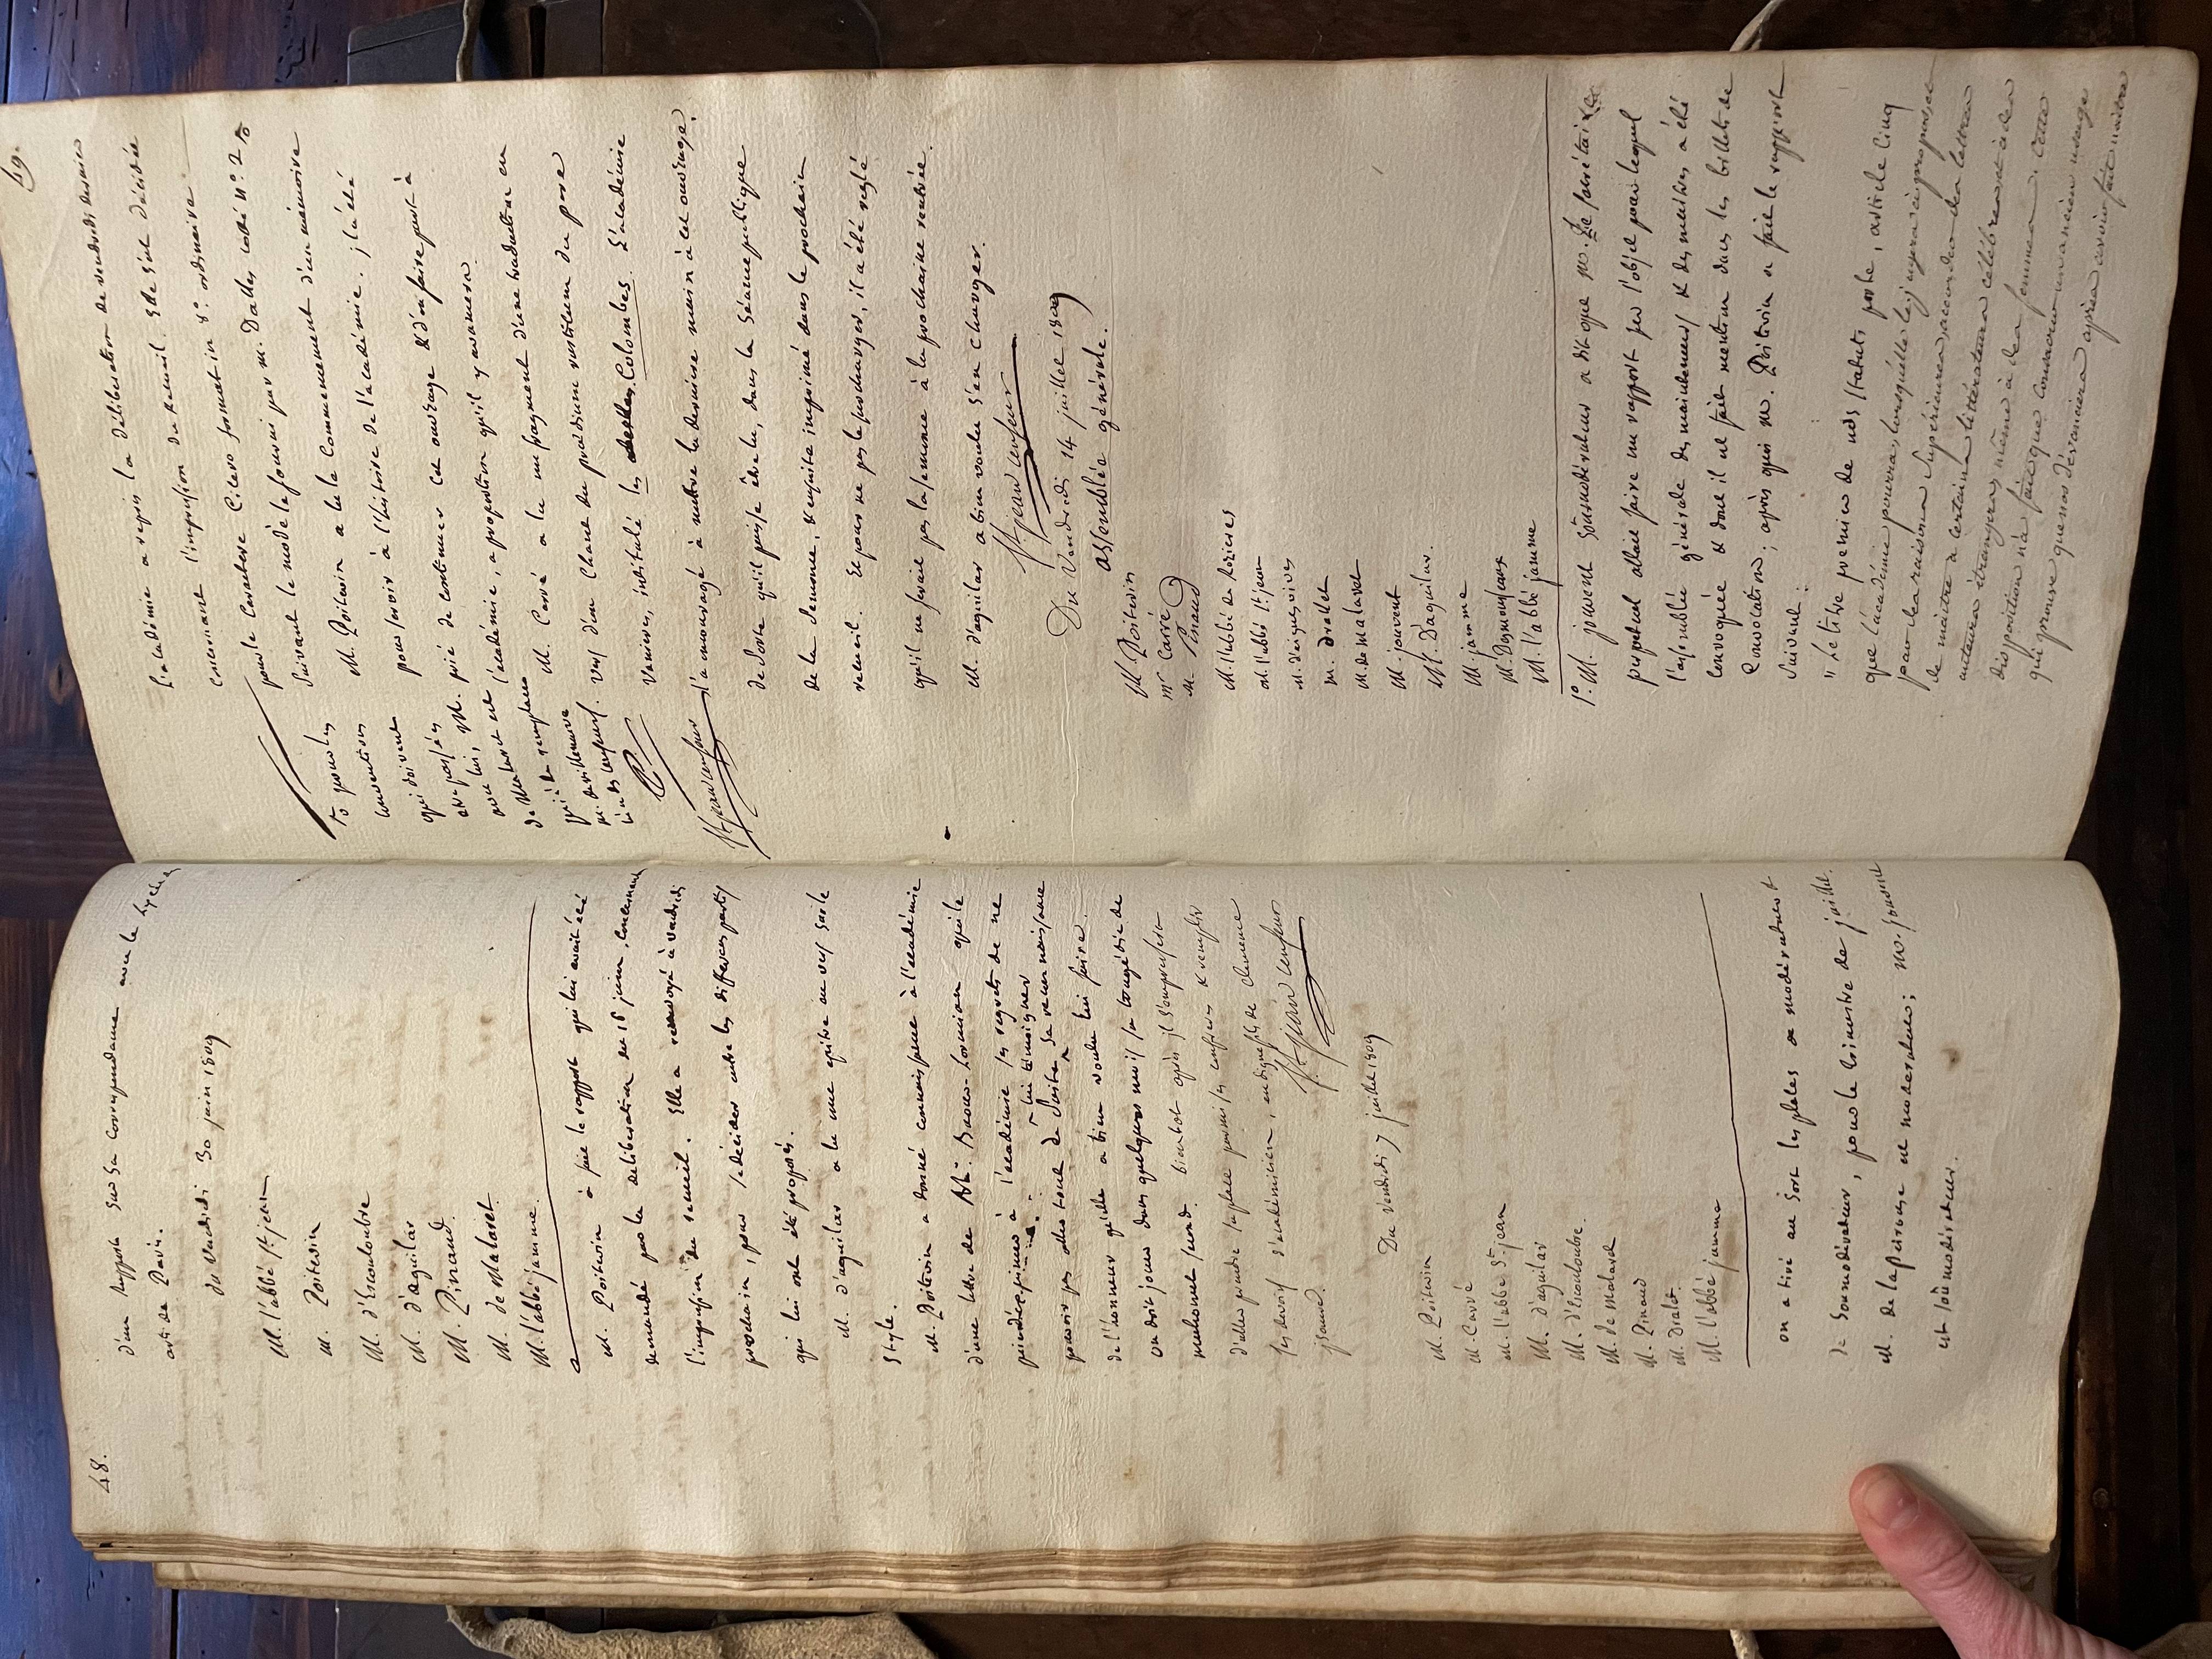 48.
d'un rapport sur sa correspondance avec le Lycée des
arts de Paris.
du vendredi 30 juin 1809
M. l'abbé St jean
M. Poitevin
M. d'Escouloubre
M. d'aguilar
M. Pinaud
M. de Malaret
M. l'abbé jamme
M. Poitevin a fait le rapport qui lui avait été
demandé par la délibération du 16 juin, concernant
l'impression du recueil. Elle a renvoyé à vendredi
prochain, pour se décider entre les différens partis
qui lui ont été proposés.
M. d'aguilar a lu une épitre en vers sur le
style.
M. Poitevin a donné connaissance à l'académie
d'une lettre de Mr. Baour-Lormian qui
à l'académie ses regrets de ne
pouvoir pas aller tout de suite lui témoigner sa reconnaissance
de l'honneur qu'elle a bien voulu lui faire.
on doit jouer dans quelques mois sa tragédie de
mahomet second. bientot après il s'empressera
d'aller prendre sa place parmi ses confrères & remplir
ses devoirs d'académicien, en digne fils de Clémence
isaure.
St jean censeur
Du vendredi 7 juillet 1809
M. Poitevin
M. Carré
M. l'abbé St jean
M. d'aguilar
M. d'Escouloubre.
M. de Malaret
M. Pinaud
M. Dralet
M. l'abbé jamme
on a tiré au sort les places de modérateur &
de sousmodérateur, pour le trimestre de juillet.
M. de lapeirouse est modérateur; M. jouvent
est soûmodérateur.
49.
L'académie a repris la délibération de vendredi dernier
concernant l'impression du recueil. Elle s'est décidée
pour le Caractere Cicero format in 8°. ordinaire
suivant le modele fourni par M. Dalles coté n°. 2
M. Poitevin a lu le Commencement d'un mémoire
pour servir à l'histoire de l'académie. il a été
prié de continuer cet ouvrage & d'en faire part à
l'académie, a proportion qu'il y avancera.
M. Carré a lu un fragment d'une traduction en
vers d'un Chant du praedium rusticum du pere
Vaniere, intitulé les Colombes. L'académie
l'a encouragé à mettre la derniere main à cet ouvrage,
de sorte qu'il puisse être lu, dans la séance publique
de la semonce, & ensuite imprimé dans le prochain
recueil. Et pour ne pas le surcharger, il a été reglé
qu'il ne ferait pas la semonce à la prochaine rentrée.
M. d'aguilar a bien voulu s'en charger.
pour les
conventions
qui doivent
etre passées
avec lui, M.
de Malaret est
prié de remplacer
M. de villeneuve
St jean censeur
St jean censeur
Du Vendredi 14 juillet 1809
assemblée générale.
M. Poitevin
Mr Carré
M. Pinaud
M. l'abbé de Rozieres
M. l'abbé St jean
M. d'aiguesvives
M. Dralet
M. de Malaret
M. jouvent
M. D'aguilar.
M. jamme
M. Desmousseaux
M. l'abbé jamme
1°. M. jouvent Soûmodérateur a dit que M. le secrétaire
perpétuel allait faire un rapport sur l'objet pour lequel
l'assemblée générale des mainteneurs & des maitres a été
convoquée & dont il est fait mention dans les billets de
convocation; après quoi M. Poitevin a fait le rapport
suivant:
" Le titre premier de nos statuts porte, article cinq
que l'académie pourra, lorsqu'elle le jugera à propos et
par des raisons supérieures, accorder des lettres
de maitre à certains littérateurs célèbres et à des
auteurs étrangers, même à des femmes. Cette
disposition n'a fait que consacrer un ancien usage
qui prouve que nos devanciers après avoir fait naitre